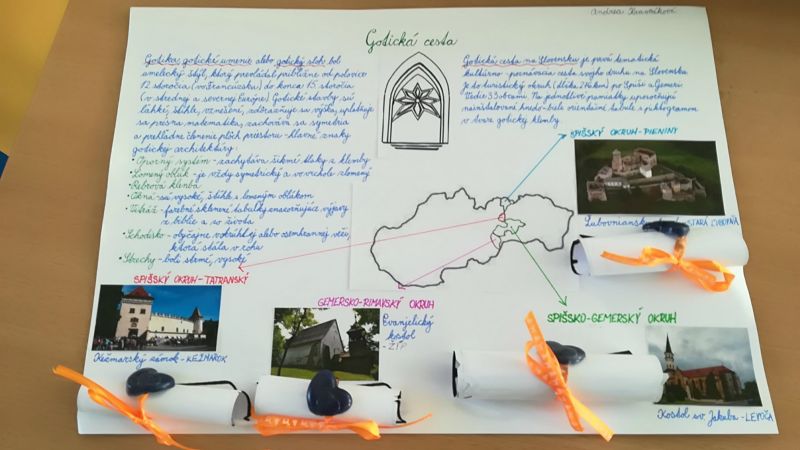 Andrea Kravníková
Gotická cesta
Gotika, gotické umenie alebo gotický sloh bol
umelecký štýl, ktorý prevládal približne od polovice
12. storočia (vo Francúzsku) do konca 15. storočia
(v strednej a severnej Európe). Gotické stavby sú
ľahké, štíhle, vznešené, zdôrazňuje sa výška, uplatňuje
sa prísna matematika, zachováva sa symetria
a prehľadné členenie plôch priestoru - hlavné znaky
gotickej architektúry:
• Oporný systém - zachytáva šikmé tlaky z klenby
• Lomený oblúk - je vždy symetrický a vo vrchole zlomený
• Rebrová klenba
• Okná - sú vysoké, štíhle s lomeným oblúkom
• Vitráž - farebné sklenené tabuľky znázorňujúce výjavy
z biblie a zo života
• Schodisko - obyčajne v okrúhlej alebo osemhrannej veži,
ktorá stála v rohu
• Strechy - boli strmé, vysoké
Gotická cesta na Slovensku je prvá tematická
kultúrno-poznávacia cesta svojho druhu na Slovensku.
Je to turistický okruh (dĺžka 276km) po Spiši a Gemeri.
Vedie 33 obcami. Na jednotlivé pamiatky upozorňujú
nainštalované hnedo-biele orientačné tabule s piktogramom
v tvare gotickej klenby.
SPIŠSKÝ OKRUH-PIENINY
STARÁ ĽUBOVŇA
SPIŠSKÝ OKRUH-TATRANSKÝ
Kežmarský zámok - KEŽMAROK
GEMERSKO-RIMAVSKÝ OKRUH
Evanjelický
kostol
SPIŠSKO-GEMERSKÝ OKRUH
Kostol sv. Jakuba - LEVOČA